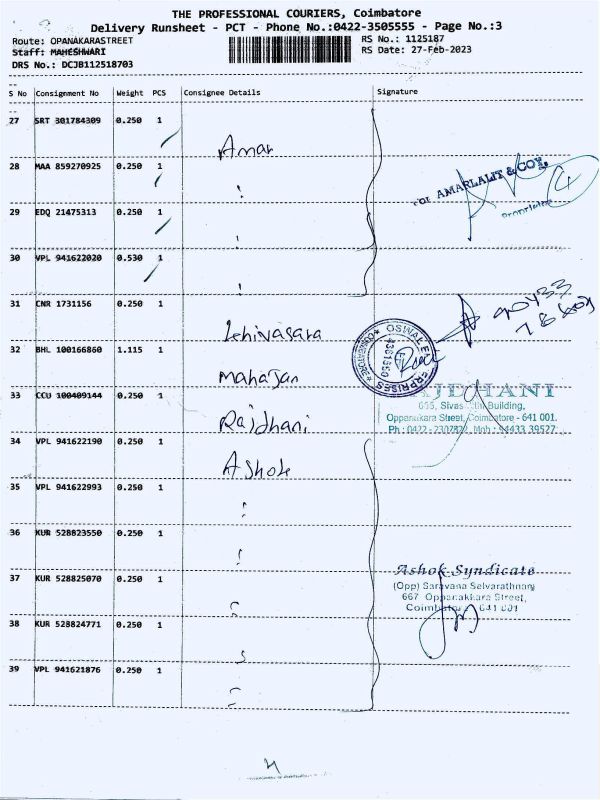 THE PROFESSIONAL COURIERS, Coimbatore
Delivery Runsheet - PCT - Phone No.:0422-3505555 - Page No.:3
Route: OPANAKARASTREET
RS No.: 1125187
Staff: MAHESHWARI
RS Date: 27-Feb-2023
DRS No.: DCJB112518703
S No Consignment No Weight PCS Consignee Details Signature
27 SRT 301784309 0.250 1 Amar
28 MAA 859270925 0.250 1
AMARLALIT & COY.
29 EDQ 21475313 0.250 1
Proprietor
30 VPL 941622020 0.530 1
31 CNR 1731156 0.250 1
32 BHL 100166860 1.115 1 mahajan
OSWAL
33 CCU 100409144 0.250 1 Rajdhani
RAJDHANI
Building,
Oppanakara Street, Coimbatore - 641 001.
34 VPL 941622190 0.250 1 Ashok
35 VPL 941622993 0.250 1
36 KUR 528823550 0.250 1
37 KUR 528825070 0.250 1
Ashok Syndicate
(Opp) Saravana Selvarathnam
667 Oppanakkara Street,
Coimbatore 641 001
38 KUR 528824771 0.250 1
39 VPL 941621876 0.250 1